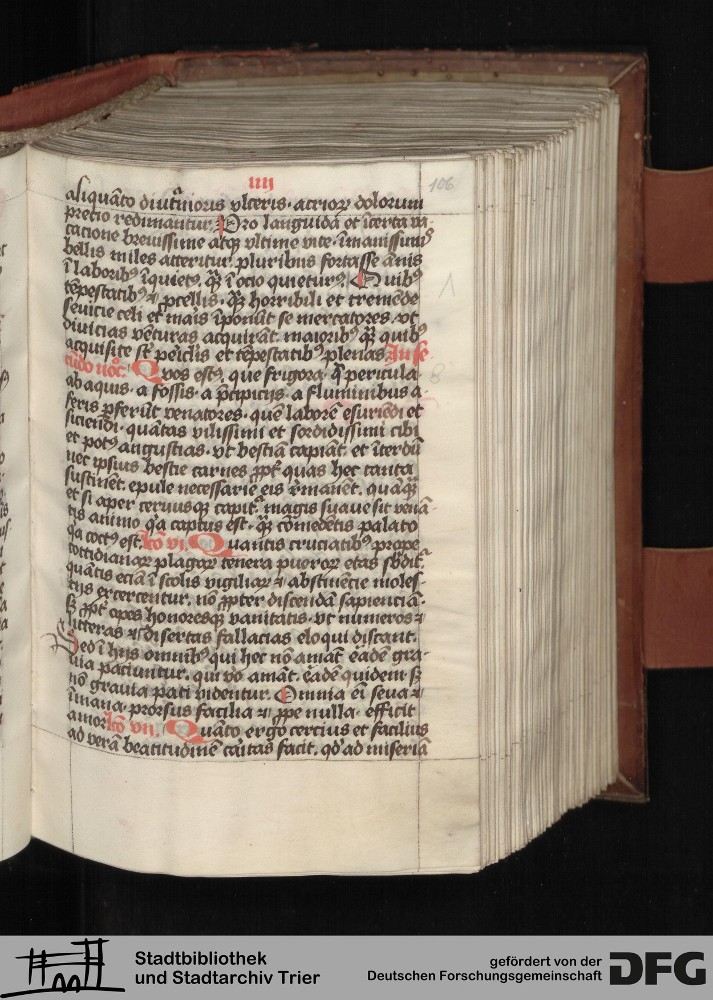 iiij
106
aliquāto diut͛nioris vlceris · acrioꝝ dolorum
precio redimantur. Pro languida et īcerta va-
catione breuissime atqꝫ vltime vite · īmanissimis
bellis miles atteritur. pluribus fortasse ānis
ī laboribꝰ īquietꝰ, qꝫ ī ocio quieturꝰ. Quibꝰ
tēpestatibꝰ ⁊ ꝓcellis · qꝫ horribili et tremēde
seuicie celi et maris īponūt se mercatores · vt
diuicias vēturas acquirāt. maioribꝰ qꝫ quibꝰ
acquisite st̄ pericl̄is et tēpestatibꝰ plenas In se
cūdo noc̄. Quos estꝰ, que frigora · q̄ pericula ·
ab aquis · a fossis · a p̄cipicijs · a fluminibus a
feris ꝑferūt venatores · quē laborē esuriēdi et
siciendi · quātas vilissimi et sordidissimi cibi
et potꝰ angustias · vt bestiā capiāt. et īterdū
nec ipsius bestie carnes ꝓpt̄ quas hec tanta
sustinēt. epule necessarie eis r̄manēt. quāqꝫ
et si aper ceruusqꝫ capit͛. magis suaue sit venā-
tis animo q̄a captus est · qꝫ cōmedētis palato
q̄a coctꝰ est. lc̄o vi. Quantis cruciatibꝰ prope
cottidianaꝝ plagaꝝ tenera pueroꝝ etas sb̄dit͛.
quātis eciā ī scolis vigiliaꝝ ⁊ abstinēcie moles-
tijs exercentur. nō ꝓpter discendā sapienciā.
sꝫ ꝓpt̄ opes honoresqꝫ vanitatis · vt numeros ⁊
litteras ⁊ disertas fallacias eloqui discant.
Sed ī hijs omnibꝰ qui hec nō amāt. eadē gra-
uia paciuntur. qui vo amāt. eadē quidem sꝫ
nō grauia pati videntur. Omnia ei seua ⁊
īmania prorsus facilia ⁊ ꝓpe nulla · efficit
amor lc̄o vii. Quāto ergo cercius et facilius
ad verā beatitudinē caritas facit. qd̄ ad miseriā
Stadtbibliothek
und Stadtarchiv Trier
gefördert von der
Deutschen Forschungsgemeinschaft
DFG